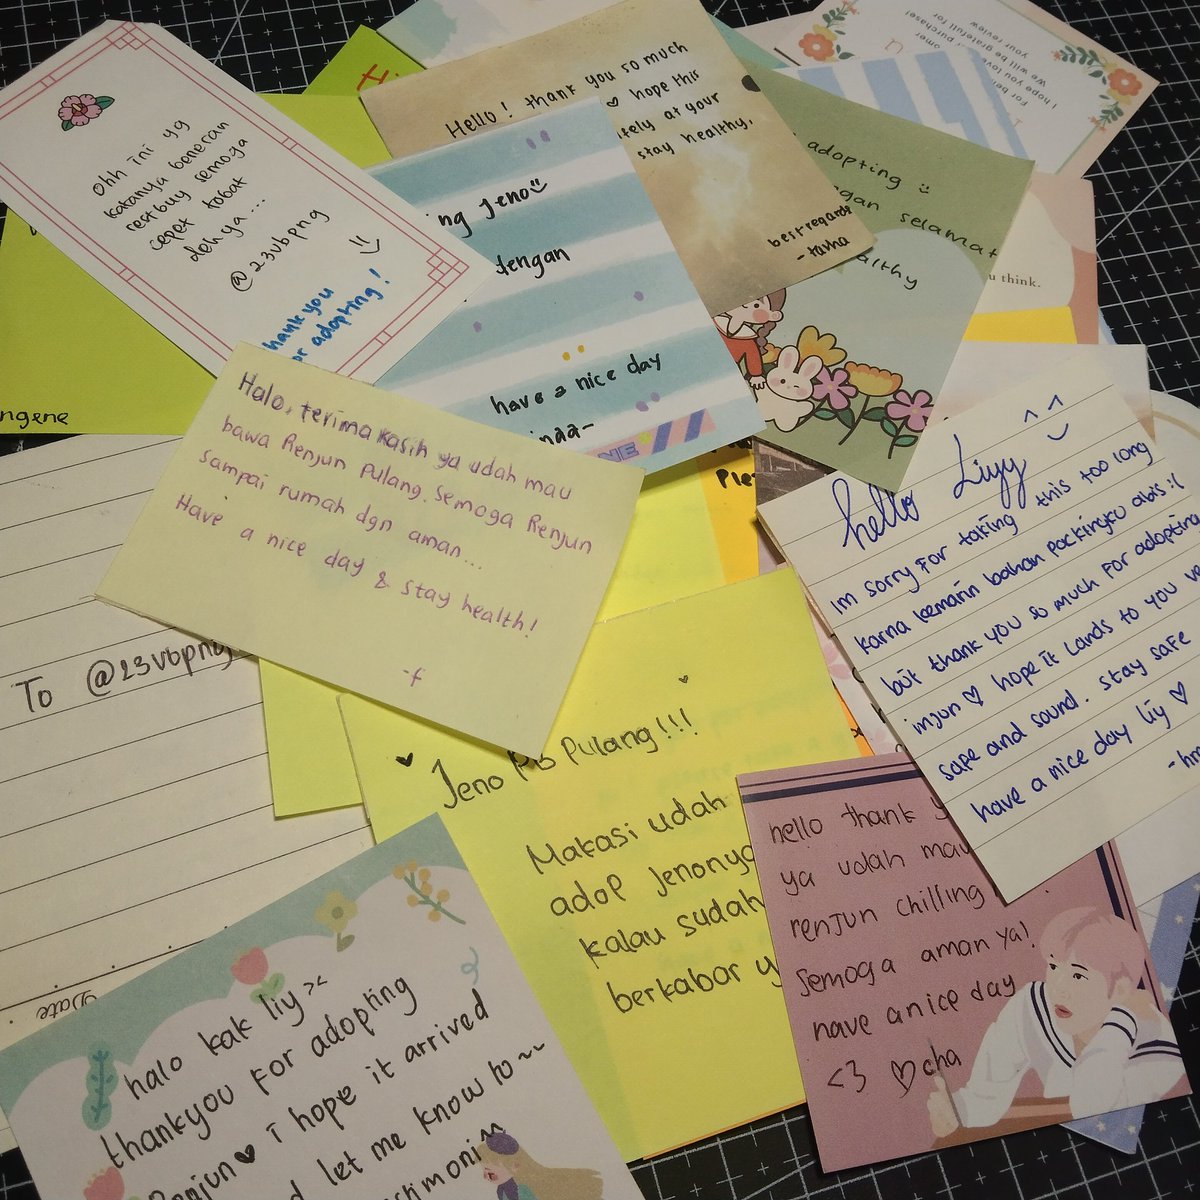 Ohh ini yg
katanya beneran
restbuy semoga
cepet tobat
dehya...
@23vbpng
hankyou
or adopting!
Hello! thank you so much
hope this
at your
stay healthy,
best regards
adopting
selamat
althy
your review!
We will be grateful! for
I hope you love
purchase!
omer
For bei
u think.
ng Jeno
dengan
have a nice day
ngene
Halo, terima kasih ya udah mau
bawa Renjun pulang. Semoga Renjun
sampai rumah dgn aman...
Have a nice day & stay health!
-f
To @23vbpng
Date
Ple
Jeno pulang!!!
Makasi udah
adop Jenonya
kalau sudah
berkabar y
hello Liyy
Im sorry for taking this too long
karna kemarin bahan packingku abis :(
but thank you so much for adopting
injun♡ hope it lands to you
safe and sound. stay safe
have a nice day liy ♡
hello thank
ya udah mau
renjun chilling
semoga aman ya!
have a nice day
<3 ♡cha
halo kak liy><
thankyou for adopting
enjun♥ i hope it arrived
let me know to~~